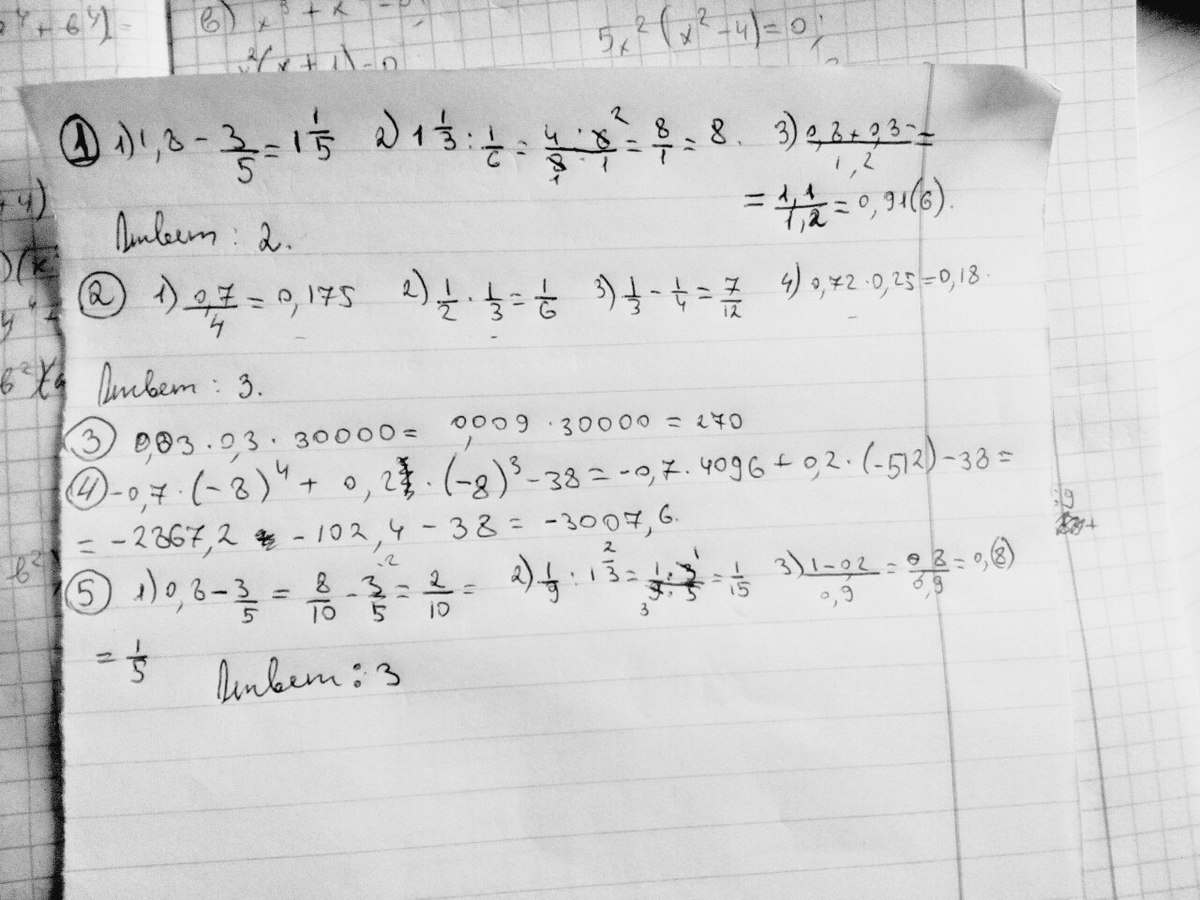 в) x³ + x
5x² (x² - 4) = 0;
① 1) 1,8 - 3/5 = 1 1/5 2) 1 1/3 : 1/6 = 4 · 6 2 / 3 1 · 1 = 8/1 = 8. 3) 0,8 + 0,3 / 1,2 =
= 1,1/1,2 = 0,91(6).
Ответ: 2.
② 1) 0,7/4 = 0,175 2) 1/2 · 1/3 = 1/6 3) 1/3 - 1/4 = 7/12 4) 0,72 · 0,25 = 0,18.
Ответ: 3.
③ 0,03 · 0,3 · 30000 = 0,009 · 30000 = 270
④ -0,7 · (-8)⁴ + 0,2 · (-8)³ - 38 = -0,7 · 4096 + 0,2 · (-512) - 38 =
= -2867,2 - 102,4 - 38 = -3007,6.
⑤ 1) 0,8 - 3/5 = 8/10 - 3/5 ·2 = 2/10 = 2) 1/9 : 1 2/3 = 1 · 3 1 / 9 3 · 5 = 1/15 3) 1 - 0,2 / 0,9 = 0,8/0,9 = 0,(8)
= 1/5
Ответ: 3